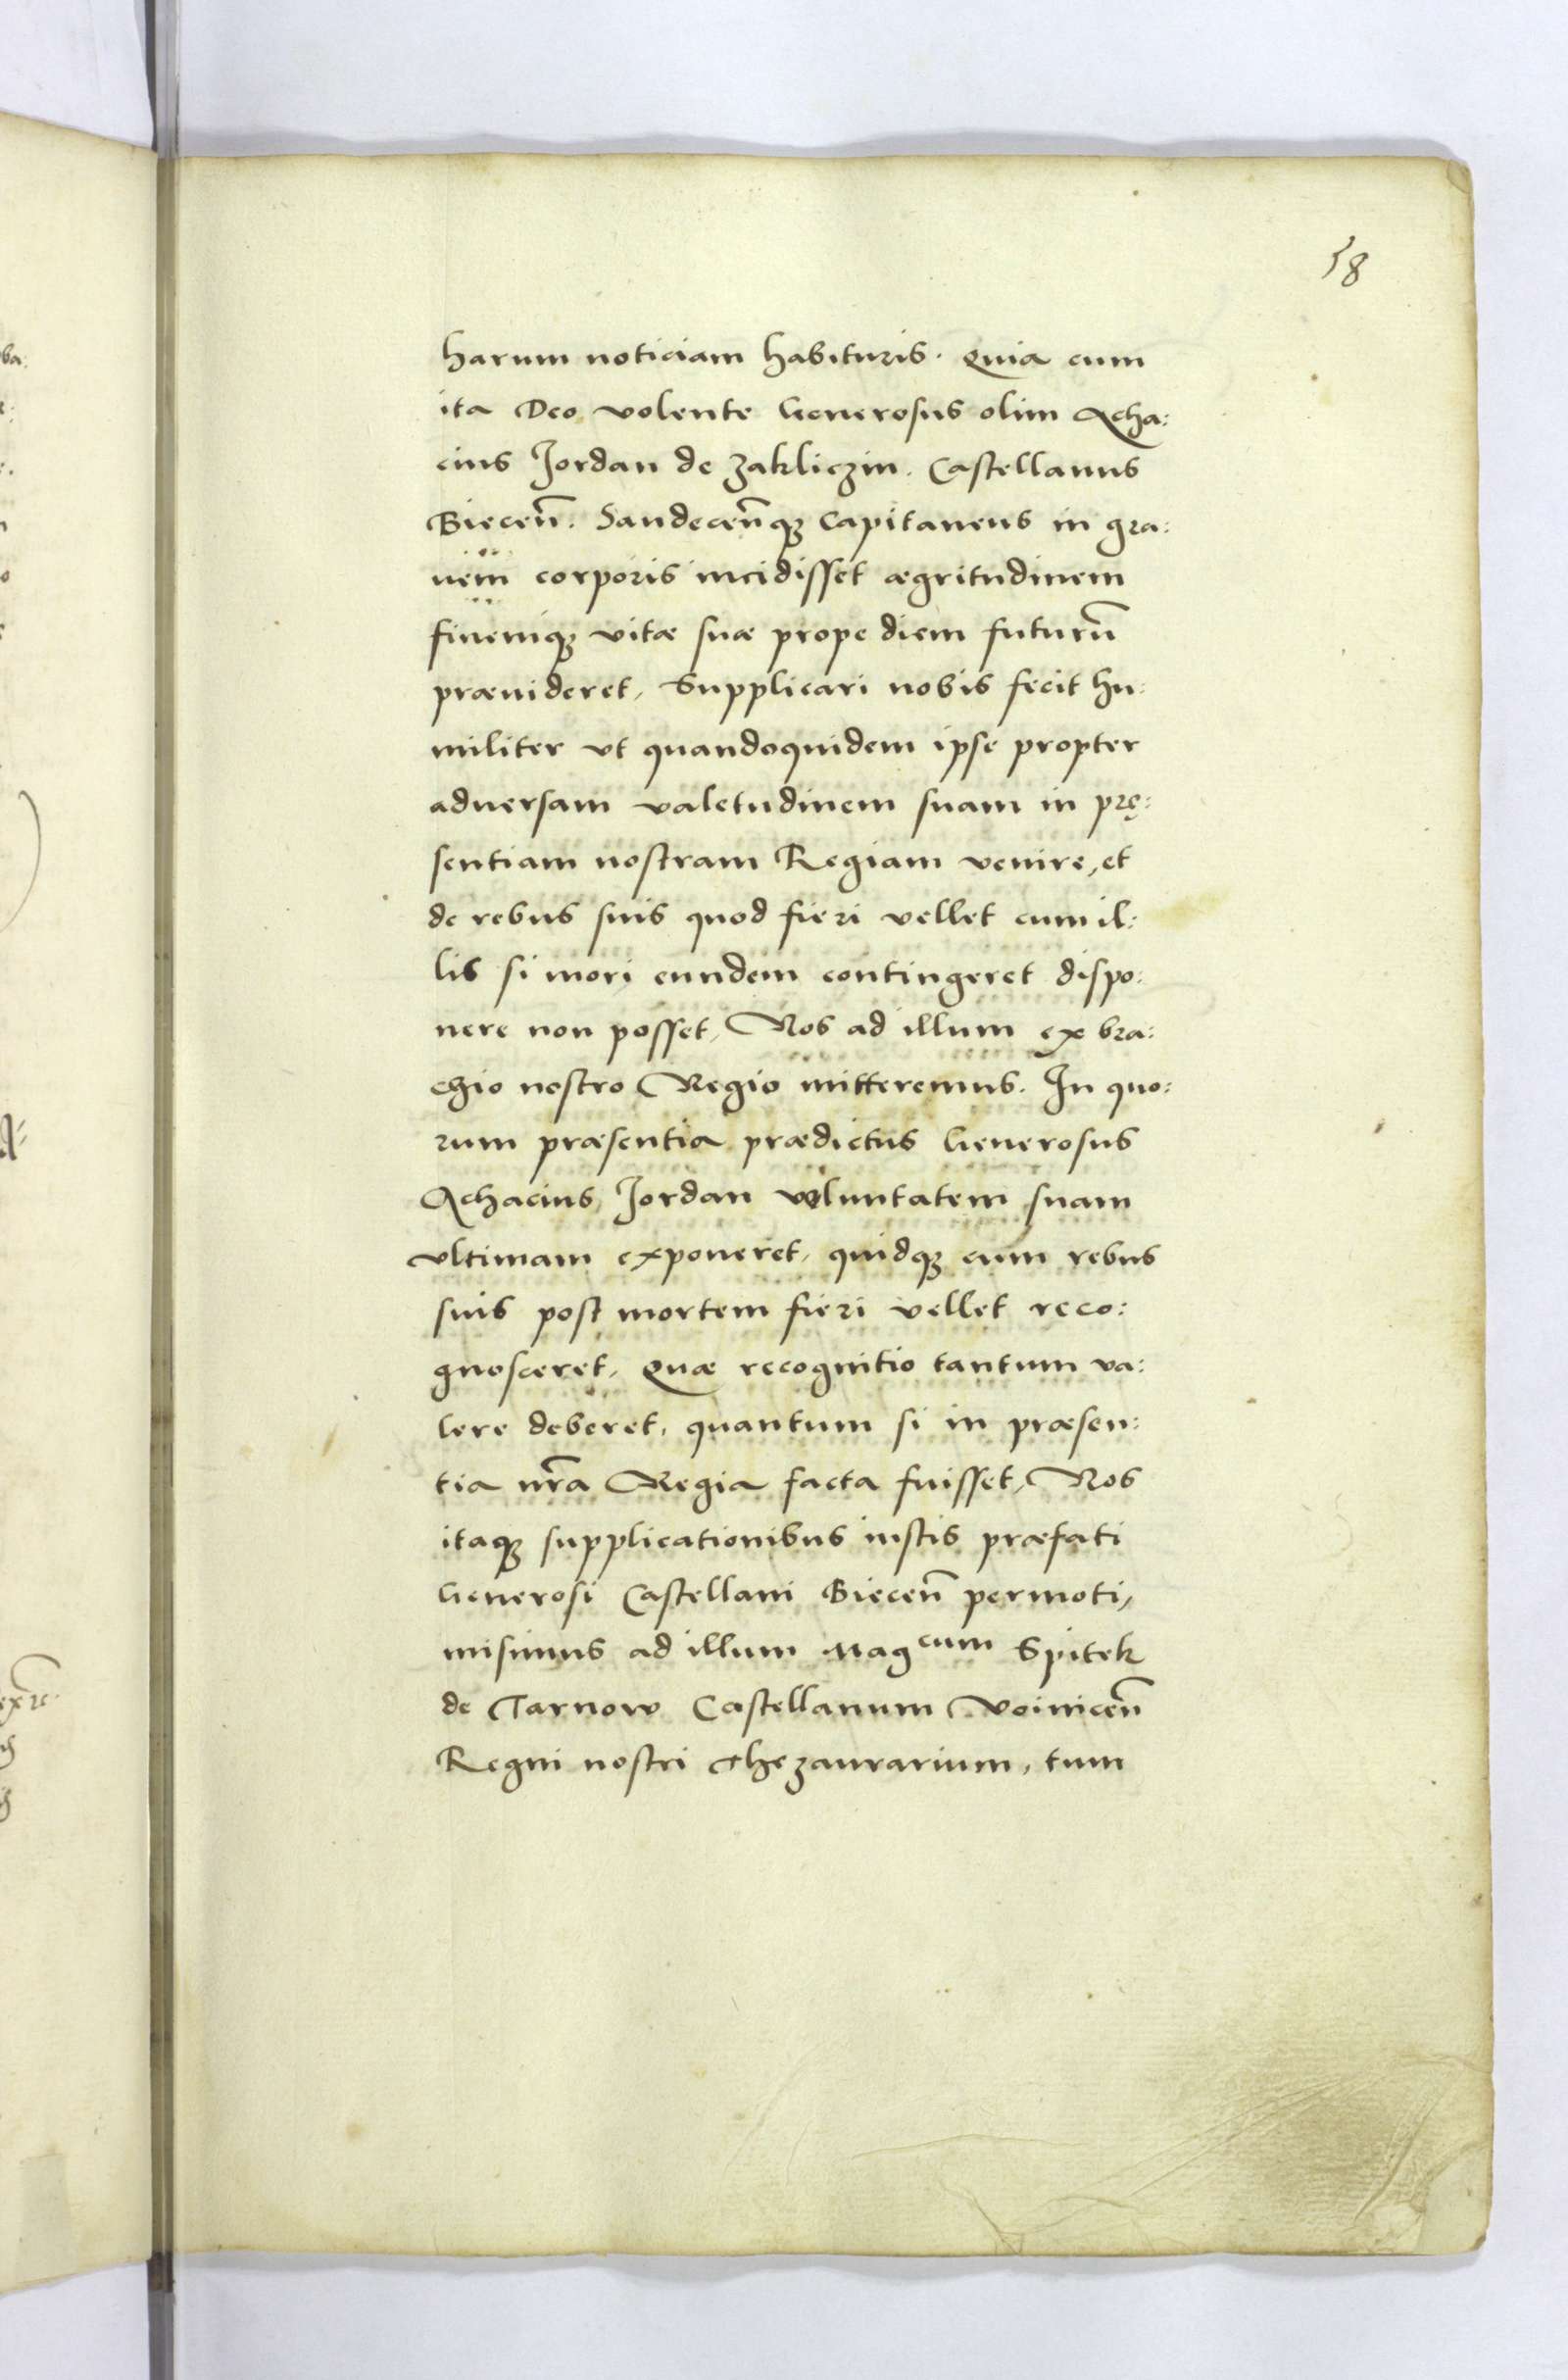 38
harum noticiam habituris. Quia cum
ita Deo volente Generosus olim Acha:
cius Jordan de Zakliczin. Castellanus
Biecen̄. Sandecen̄q3 Capitaneus in gra:
uem corporis incidisset ægritudinem
finemq3 vitæ suæ prope diem futurū
præuideret, Supplicari nobis fecit hu:
militer vt quandoquidem ipse propter
aduersam valetudinem suam in prę:
sentiam nostram Regiam venire, et
de rebus suis quod fieri vellet cum il:
lis si mori eundem contingeret dispo:
nere non posset, Nos ad illum ex bra:
chio nostro Regio mitteremus. In quo:
rum præsentia prædictus Generosus
Achacius Jordan voluntatem suam
vltimam exponeret, quidq3 cum rebus
suis post mortem fieri vellet reco:
gnosceret, Quæ recognitio tantum va:
lere deberet, quantum si in præsen:
tia nr̄a Regia facta fuisset, Nos
itaq3 supplicationibus iustis præfati
Generosi Castellani Biecen̄ permoti,
misimus ad illum Magcum Spitek
de Tarnow Castellanum Voinicen̄
Regni nostri Thezaurarium, tum